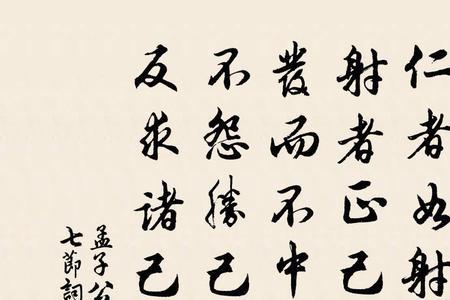 仁者如射
射者正己
發而不中
不怨勝己
反求諸己
孟子公
七節詞